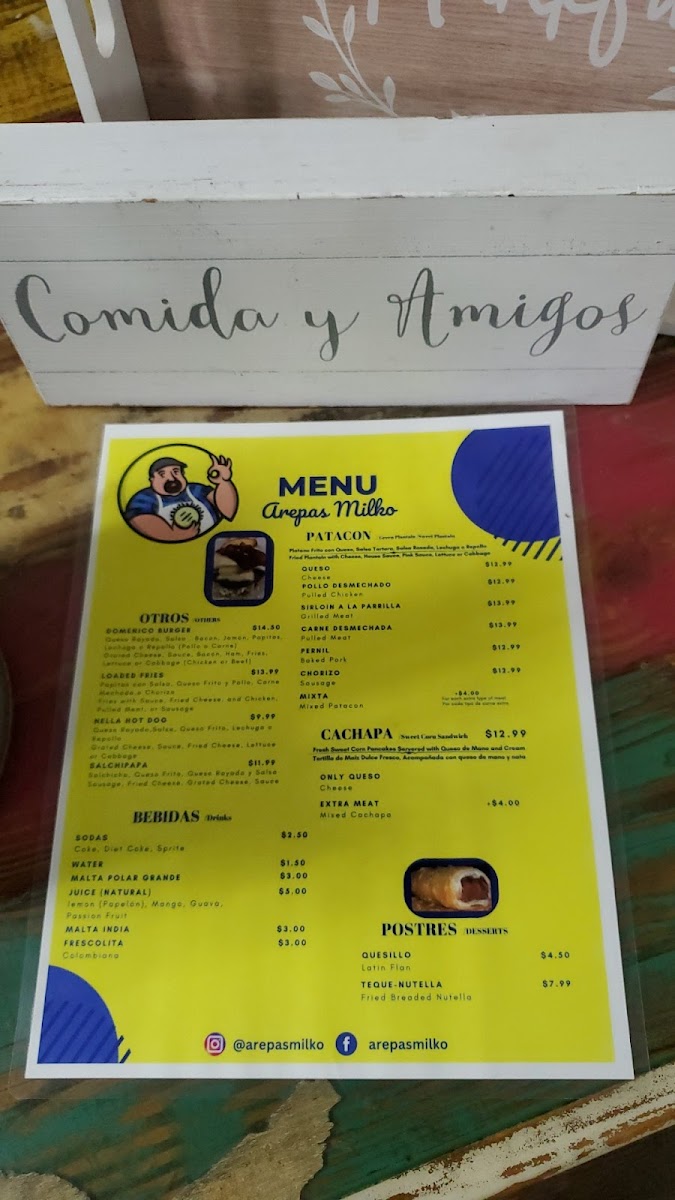 Comida y Amigos
MENU
Arepas Milko
PATACON /Green Plantain /Sweet Plantain
Platano Frito con Queso, Salsa Tartara, Salsa Rosada, Lechuga o Repollo
Fried Plantain with Cheese, House Sauce, Pink Sauce, Lettuce or Cabbage
QUESO $12.99
Cheese
POLLO DESMECHADO $12.99
Pulled Chicken
SIRLOIN A LA PARRILLA $13.99
Grilled Meat
CARNE DESMECHADA $13.99
Pulled Meat
PERNIL $12.99
Baked Pork
CHORIZO $12.99
Sausage
MIXTA +$4.00
Mixed Patacon
For each extra type of meat
Por cada tipo de carne extra
CACHAPA /Sweet Corn Sandwich $12.99
Fresh Sweet Corn Pancakes Servered with Queso de Mano and Cream
Tortilla de Maiz Dulce Fresco, Acompañada con queso de mano y nata
ONLY QUESO
Cheese
EXTRA MEAT +$4.00
Mixed Cachapa
OTROS /OTHERS
DOMENICO BURGER $14.50
Queso Rayado, Salsa, Bacon, Jamon, Papitas,
Lechuga o Repollo (Pollo o Carne)
Grated Cheese, Sauce, Bacon, Ham, Fries,
Lettuce or Cabbage (Chicken or Beef)
LOADED FRIES $13.99
Papitas con Salsa, Queso Frito y Pollo, Carne
Mechada o Chorizo
Fries with Sauce, Fried Cheese, and Chicken,
Pulled Meat, or Sausage
NELLA HOT DOG $9.99
Queso Rayado,Salsa, Queso Frito, Lechuga o
Repollo
Grated Cheese, Sauce, Fried Cheese, Lettuce
or Cabbage
SALCHIPAPA $11.99
Salchicha, Queso Frito, Queso Rayado y Salsa
Sausage, Fried Cheese, Grated Cheese, Sauce
BEBIDAS /Drinks
SODAS $2.50
Coke, Diet Coke, Sprite
WATER $1.50
MALTA POLAR GRANDE $3.00
JUICE (NATURAL) $5.00
lemon (Papelón), Mango, Guava,
Passion Fruit
MALTA INDIA $3.00
FRESCOLITA $3.00
Colombiana
POSTRES /DESSERTS
QUESILLO $4.50
Latin Flan
TEQUE-NUTELLA $7.99
Fried Breaded Nutella
@arepasmilko arepasmilko